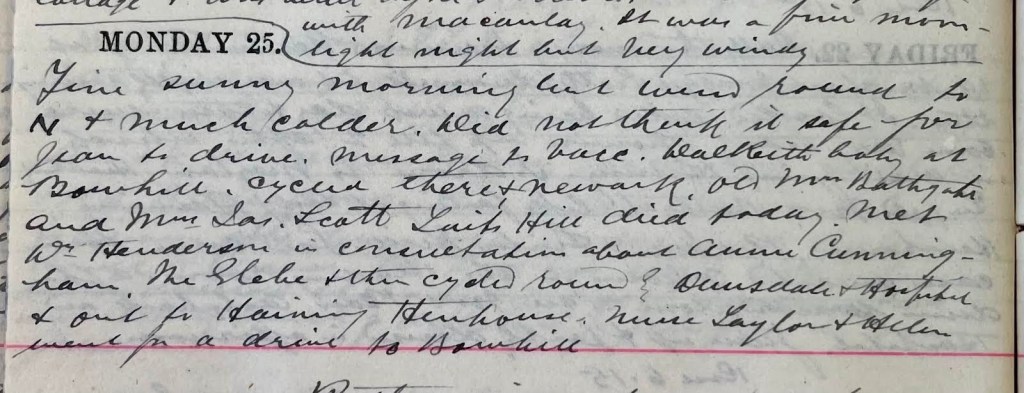 with Macaulay. It was a fine moon-
MONDAY 25. light night but very windy
Fine sunny morning but wind round to
N & much colder. Did not think it safe for
Jean to drive. Message to vacc. Dalkeith baby at
Bowhill. Cycled there & Newark. Old Mrs Bathgate
and Mrs Jas. Scott Hill died today. Met
Dr Henderson in consultation about Annie Cunning-
ham, The Glebe & then cycled round Dunsdale & Hospital
& out to Haining Henhouse. Nurse Taylor & Helen
went for a drive to Bowhill